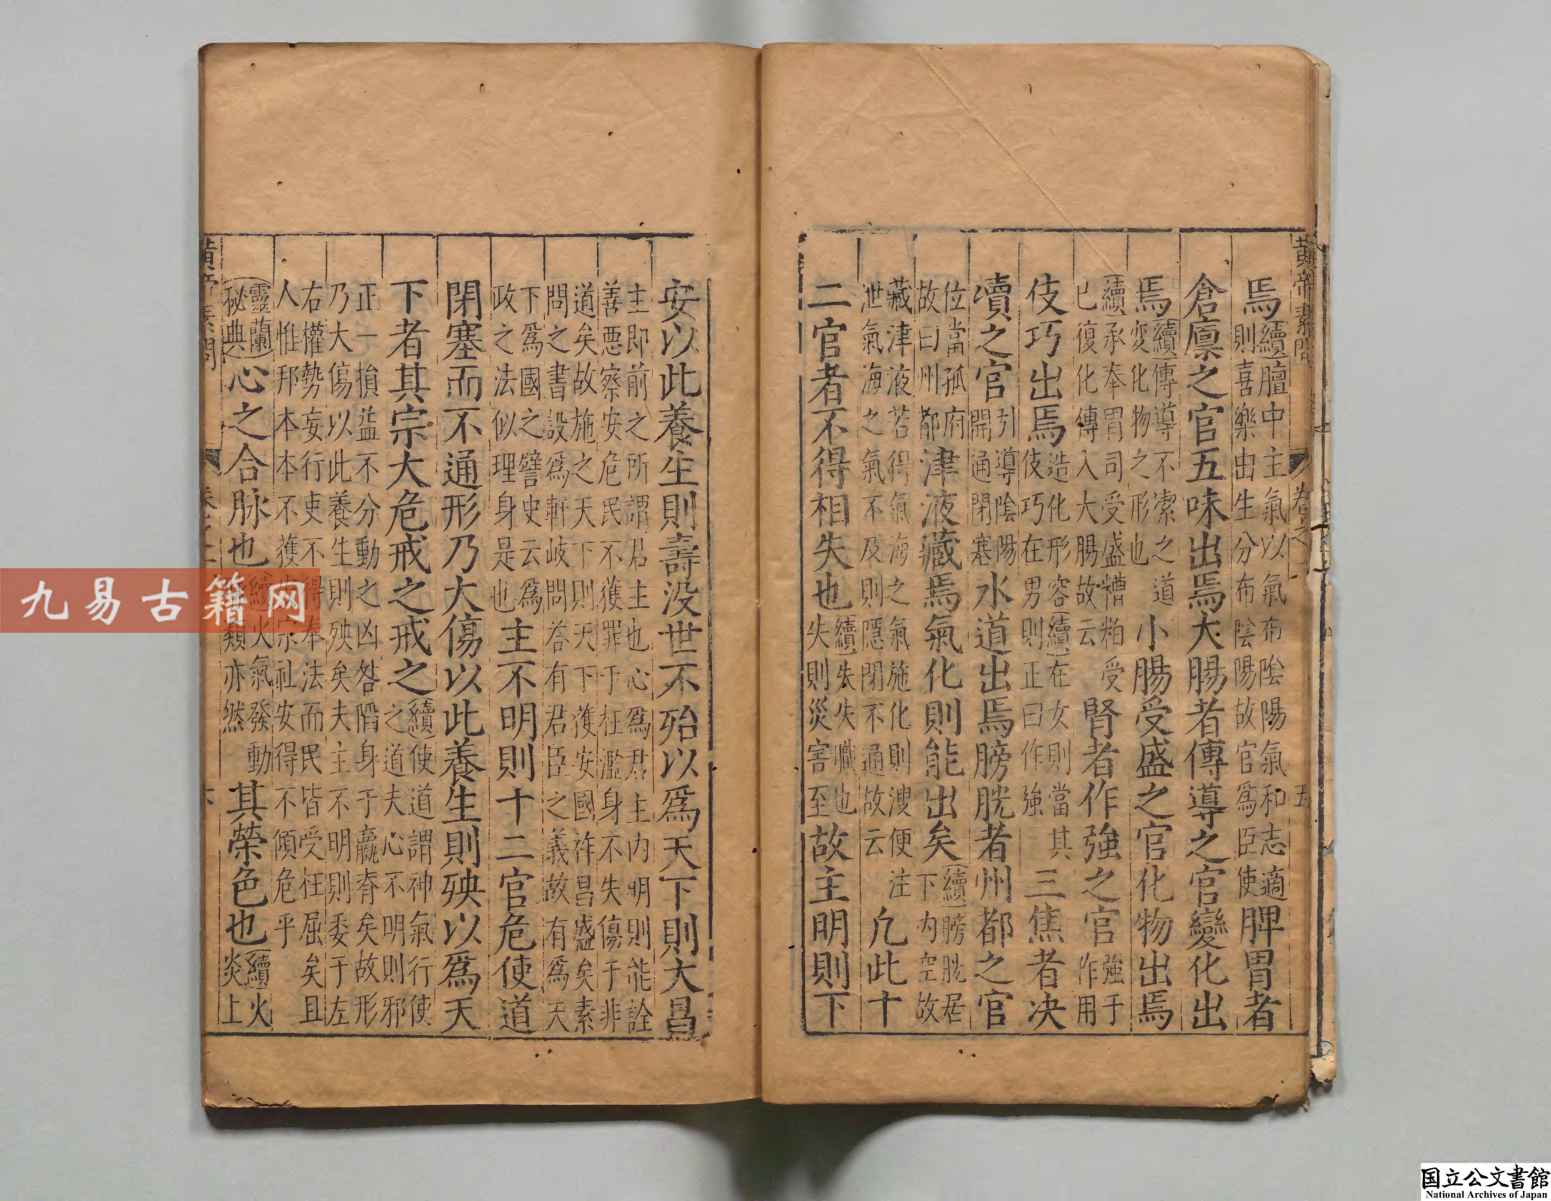 焉續膻中主氣以氣布陰陽氣和志適則喜樂出生分布陰陽故官爲臣使脾胃者
倉廪之官五味出焉大腸者傳導之官變化出
焉續傳導不索之道變化物之形也小腸受盛之官化物出焉
續承奉胃司受盛糟粕受已復化傳入大腸故云腎者作強之官強于作用
伎巧出焉造化形容續在女則當其伎巧在男則正曰作強三焦者决
瀆之官引導陰陽開通閉塞水道出焉膀胱者州都之官
位當孤府故曰州都津液藏焉氣化則能出矣續膀胱居下内空故
藏津液若得氣海之氣施化則溲便注泄氣海之氣不及則隱閉不通故云凡此十
二官者不得相失也續失失職也失則災害至故主明則下
安以此養生則壽没世不殆以爲天下則大昌
主即前之所謂君主也心爲君主内明則能詮善惡察安危民不獲罪于枉濫身不失傷于非
道矣故施之天下則天下獲安國祚昌盛矣素問之書設爲軒岐問荅有君臣之義故有爲天
下爲國之譬史云爲政之法似理身是也主不明則十二官危使道
閉塞而不通形乃大傷以此養生則殃以爲天
下者其宗大危戒之戒之續使道謂神氣行使之道夫心不明則邪
正一損益不分動之凶咎隮身于羸瘠矣故形乃大傷以此養生則殃矣夫主不明則委于左
右權勢妄行吏不得奉法而民皆受枉屈矣且人惟邦本本不獲安宗社安得不傾危乎
靈蘭秘典心之合脉也續火氣發動類亦然其榮色也續火炎上
黄帝素問 卷之 五
九易古籍网
国立公文書館
National Archives of Japan